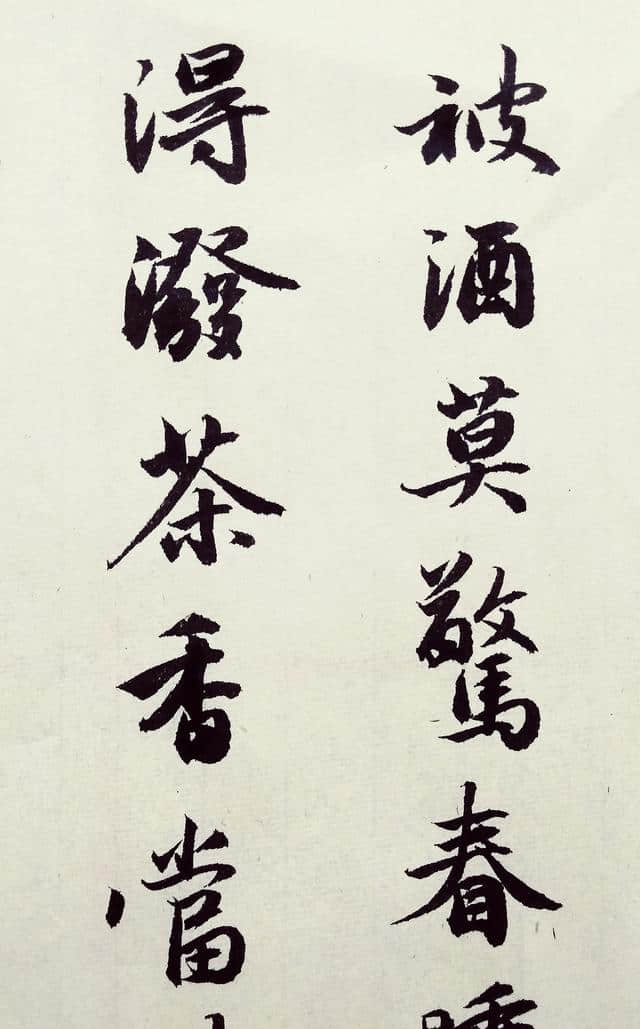 被酒莫驚春
得潑茶香當